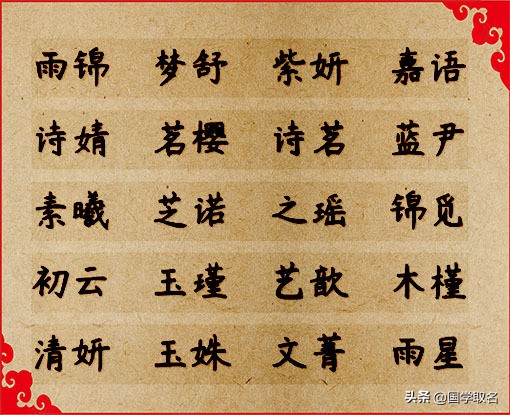 雨锦 梦舒 紫妍 嘉语
诗婧 茗樱 诗茗 蓝尹
素曦 芝诺 之瑶 锦觅
初云 玉瑾 艺歆 木槿
清妍 玉姝 文菁 雨星
头条 @国学取名